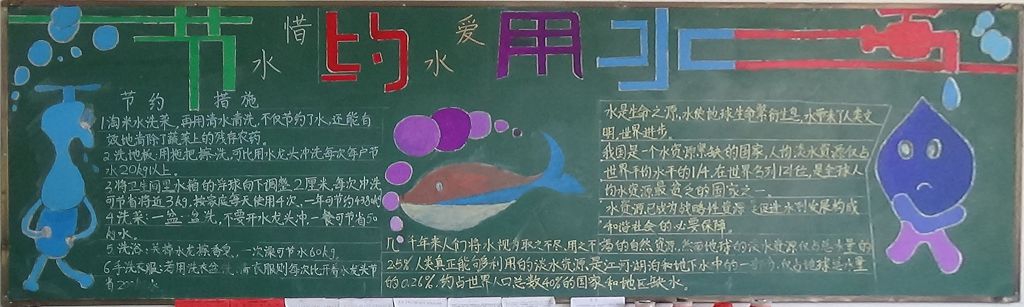 节约用水
惜水
爱水
节约措施
1淘米水洗菜,再用清水清洗,不仅节约了水,还能有
效地清除了蔬菜上的残存农药。
2洗地板:用拖把擦洗,可比用水龙头冲洗每次每户节
水20kg以上。
3将卫生间里水箱的浮球向下调整2厘米,每次冲洗
可节省将近3kg,按家庭每天使用4次,一年可节约4380kg
4洗菜:一盆一盆洗,不要开水龙头冲,一餐可节省50
kg水。
5洗浴:关掉水龙擦香皂,一次澡可节水60kg。
6手洗衣服:若用洗衣盆洗、清衣服则每次比开着水龙头节
省
水是生命之源,水使地球生命繁衍生息,水带来了人类文
明,世界进步。
我国是一个水资源紧缺的国家,人均淡水资源仅占
世界平均水平的1/4,在世界名列121位,是全球人
均水资源最贫乏的国家之一。
水资源已成为战略性资源,是促进水利发展构成
和谐社会的必要保障。
几千年来人们将水视为取之不尽,用之不竭的自然资源,然而地球的淡水资源仅占总水量的
2.5%人类真正能够利用的淡水资源是江河湖泊和地下水中的一部分,仅占地球总水量
的0.26%,约占世界人口总数40%的国家和地区缺水。